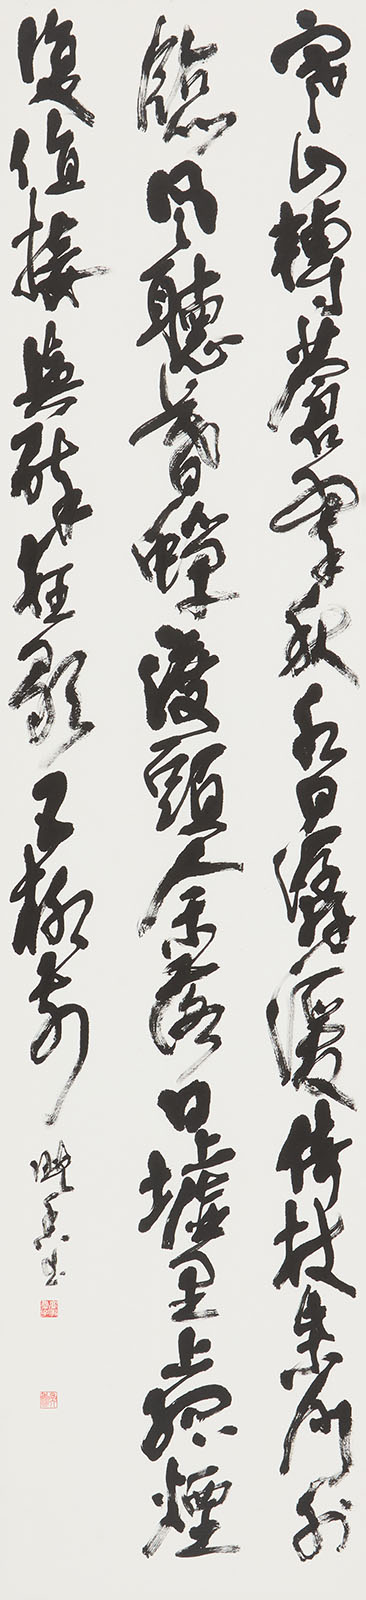 寒山轉蒼翠秋水日潺湲倚杖柴門外
臨風聽暮蟬渡頭餘落日墟里上孤煙
復値接輿醉狂歌五柳前